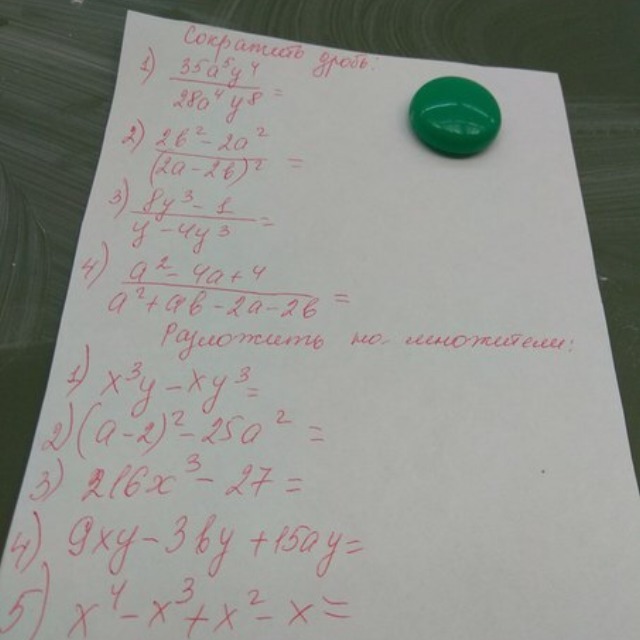 Сократить дробь:
1) 35a⁵y⁴/28a⁴y⁸ =
2) 2b² - 2a²/(2a - 2b)² =
3) 8y³ - 1/y - 4y³ =
4) a² - 4a + 4/a² + ab - 2a - 2b =
Разложить на множители:
1) x³y - xy³ =
2) (a - 2)² - 25a² =
3) 216x³ - 27 =
4) 9xy - 3by + 15ay =
5) x⁴ - x³ + x² - x =